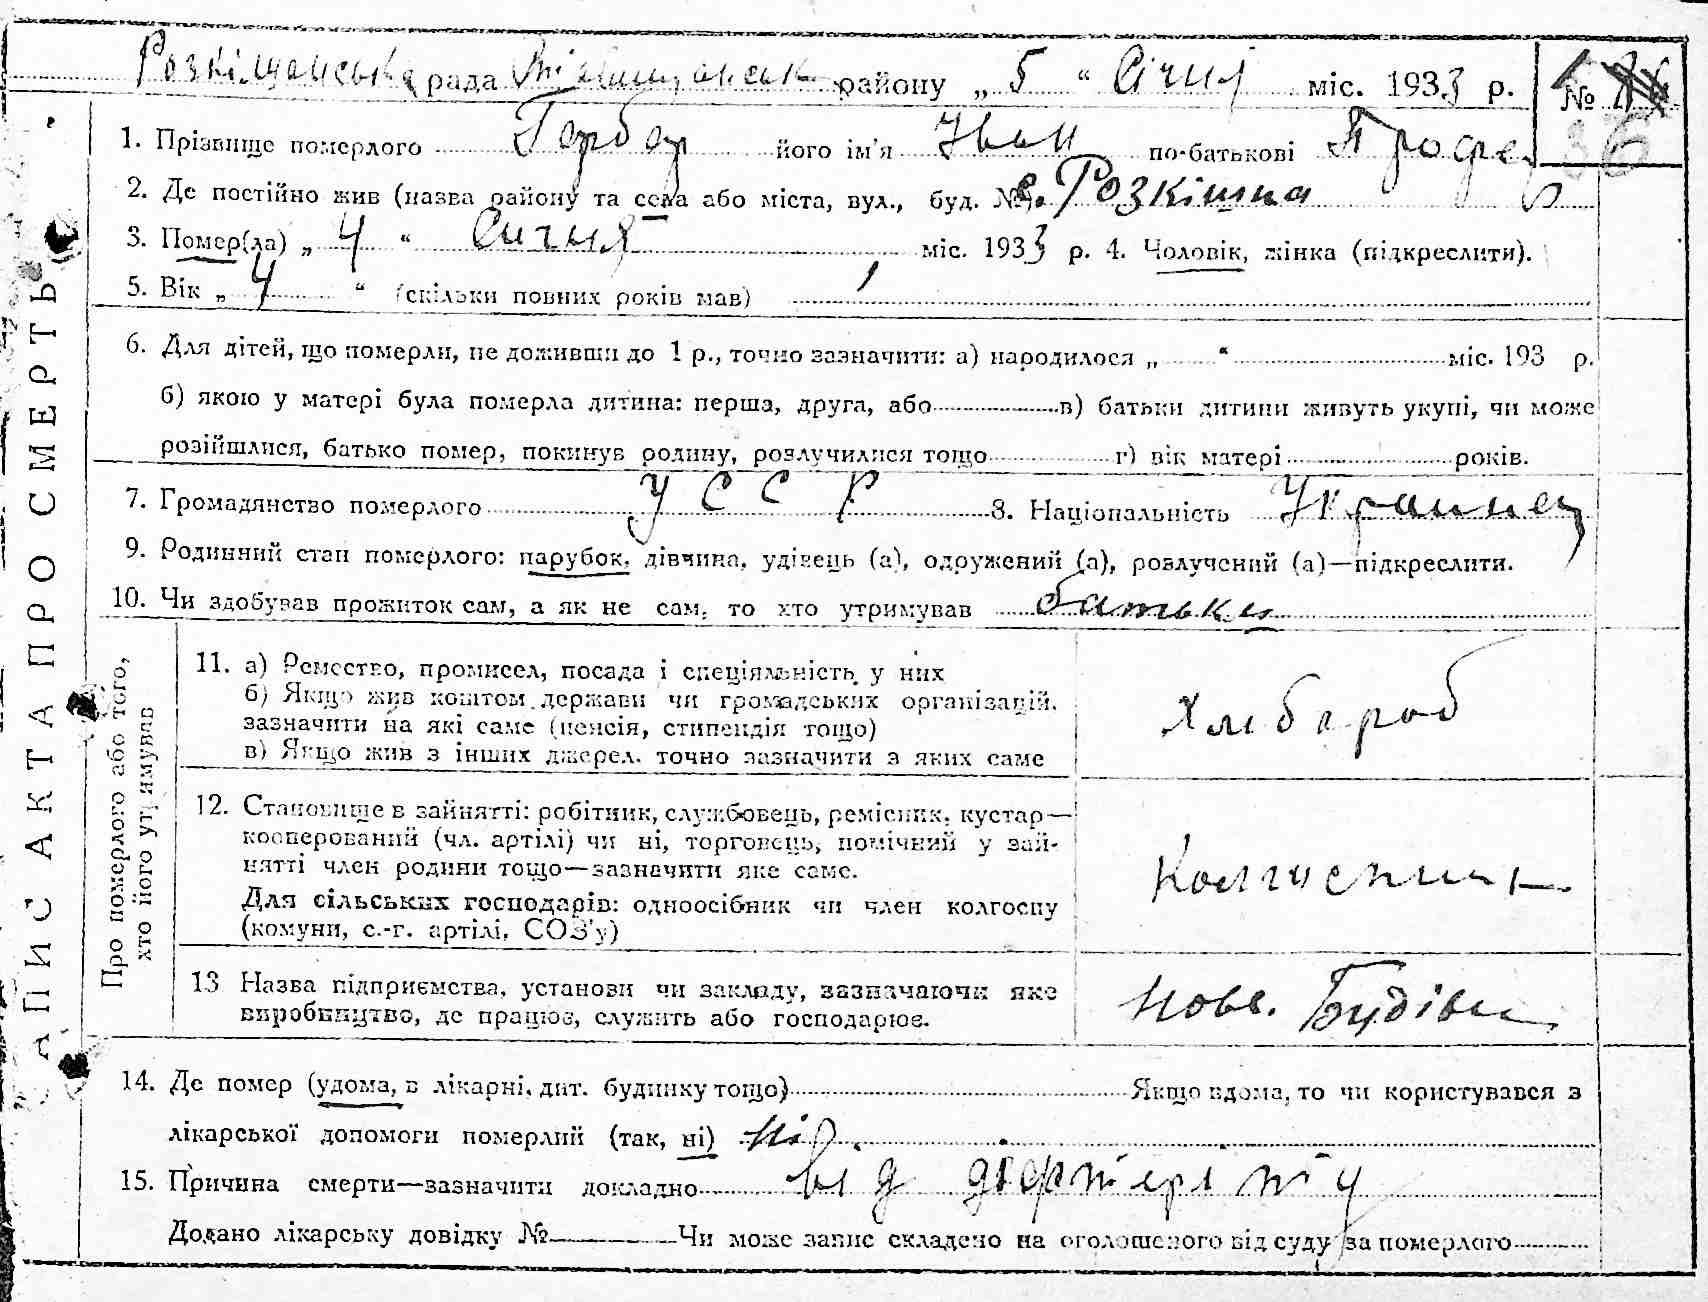 Розкішанська рада району „ 5 “ Січня міс. 1933 р. №
36
1. Прізвище померлого Гербер його ім'я Іван по-батькові
2. Де постійно жив (назва району та села або міста, вул., буд. № с. Розкішна
3. Помер(ла) „ 4 “ Сичня міс. 1933 р. 4. Чоловік, жінка (підкреслити).
5. Вік „ 4 “ (скільки повних років мав)
6. Для дітей, що померли, не доживши до 1 р., точно зазначити: а) народилося „ “ міс. 193 р.
б) якою у матері була померла дитина: перша, друга, або в) батьки дитини живуть укупі, чи може
розійшлися, батько помер, покинув родину, розлучилися тощо г) вік матері років.
7. Громадянство померлого УССР 8. Національність Украинец
9. Родинний стан померлого: парубок, дівчина, удівець (а), одружений (а), розлучений (а)—підкреслити.
10. Чи здобував прожиток сам, а як не сам, то хто утримував батьки
11. а) Ремество, промисел, посада і спеціяльність у них
б) Якщо жив коштом держави чи громадських організацій,
зазначити на які саме (пенсія, стипендія тощо)
в) Якщо жив з інших джерел, точно зазначити з яких саме
хлібороб
12. Становище в зайнятті: робітник, службовець, ремісник, кустар—
кооперований (чл. артілі) чи ні, торговець, помічний у зай-
нятті член родини тощо—зазначити яке саме.
Для сільських господарів: одноосібник чи член колгоспу
(комуни, с.-г. артілі, СОЗ'у)
Колгоспник
13 Назва підприємства, установи чи закладу, зазначаючи яке
виробництво, де працює, служить або господарює.
Нове. Будівн
14. Де помер (удома, в лікарні, дит. будинку тощо) Якщо вдома, то чи користувався з
лікарської допомоги померлий (так, ні) ні
15. Причина смерти—зазначити докладно від
Додано лікарську довідку № Чи може запис складено на оголошеного від суду за померлого
Про померлого або того,
хто його утримував
АПИС АКТА ПРО СМЕРТЬ